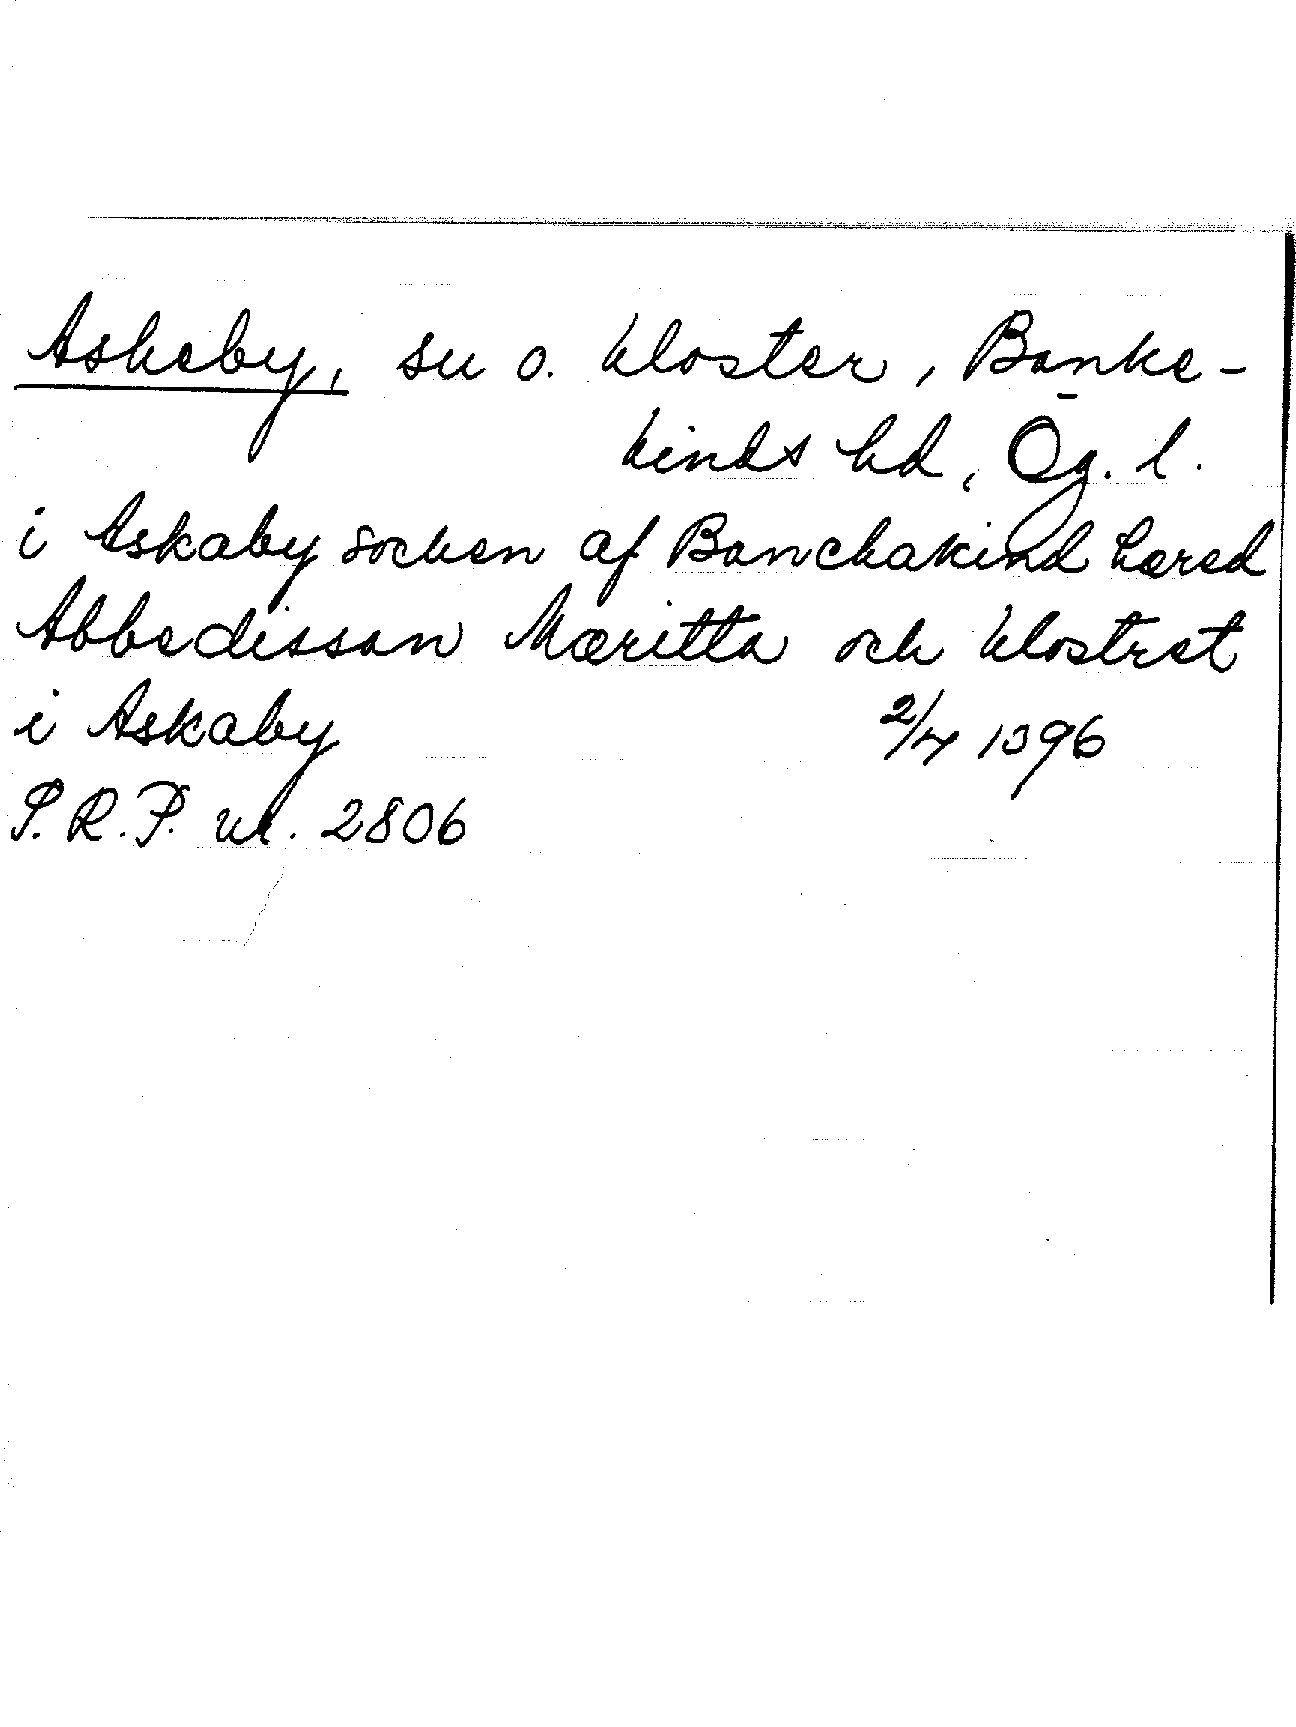 Askeby, sn o. kloster, Banke-
kinds hd, Ög. l.
i Askaby socken af Banchakind hæred
Abbedissan Mæritta och klostret
i Askaby 2/4 1396
P.R.P. nr. 2806